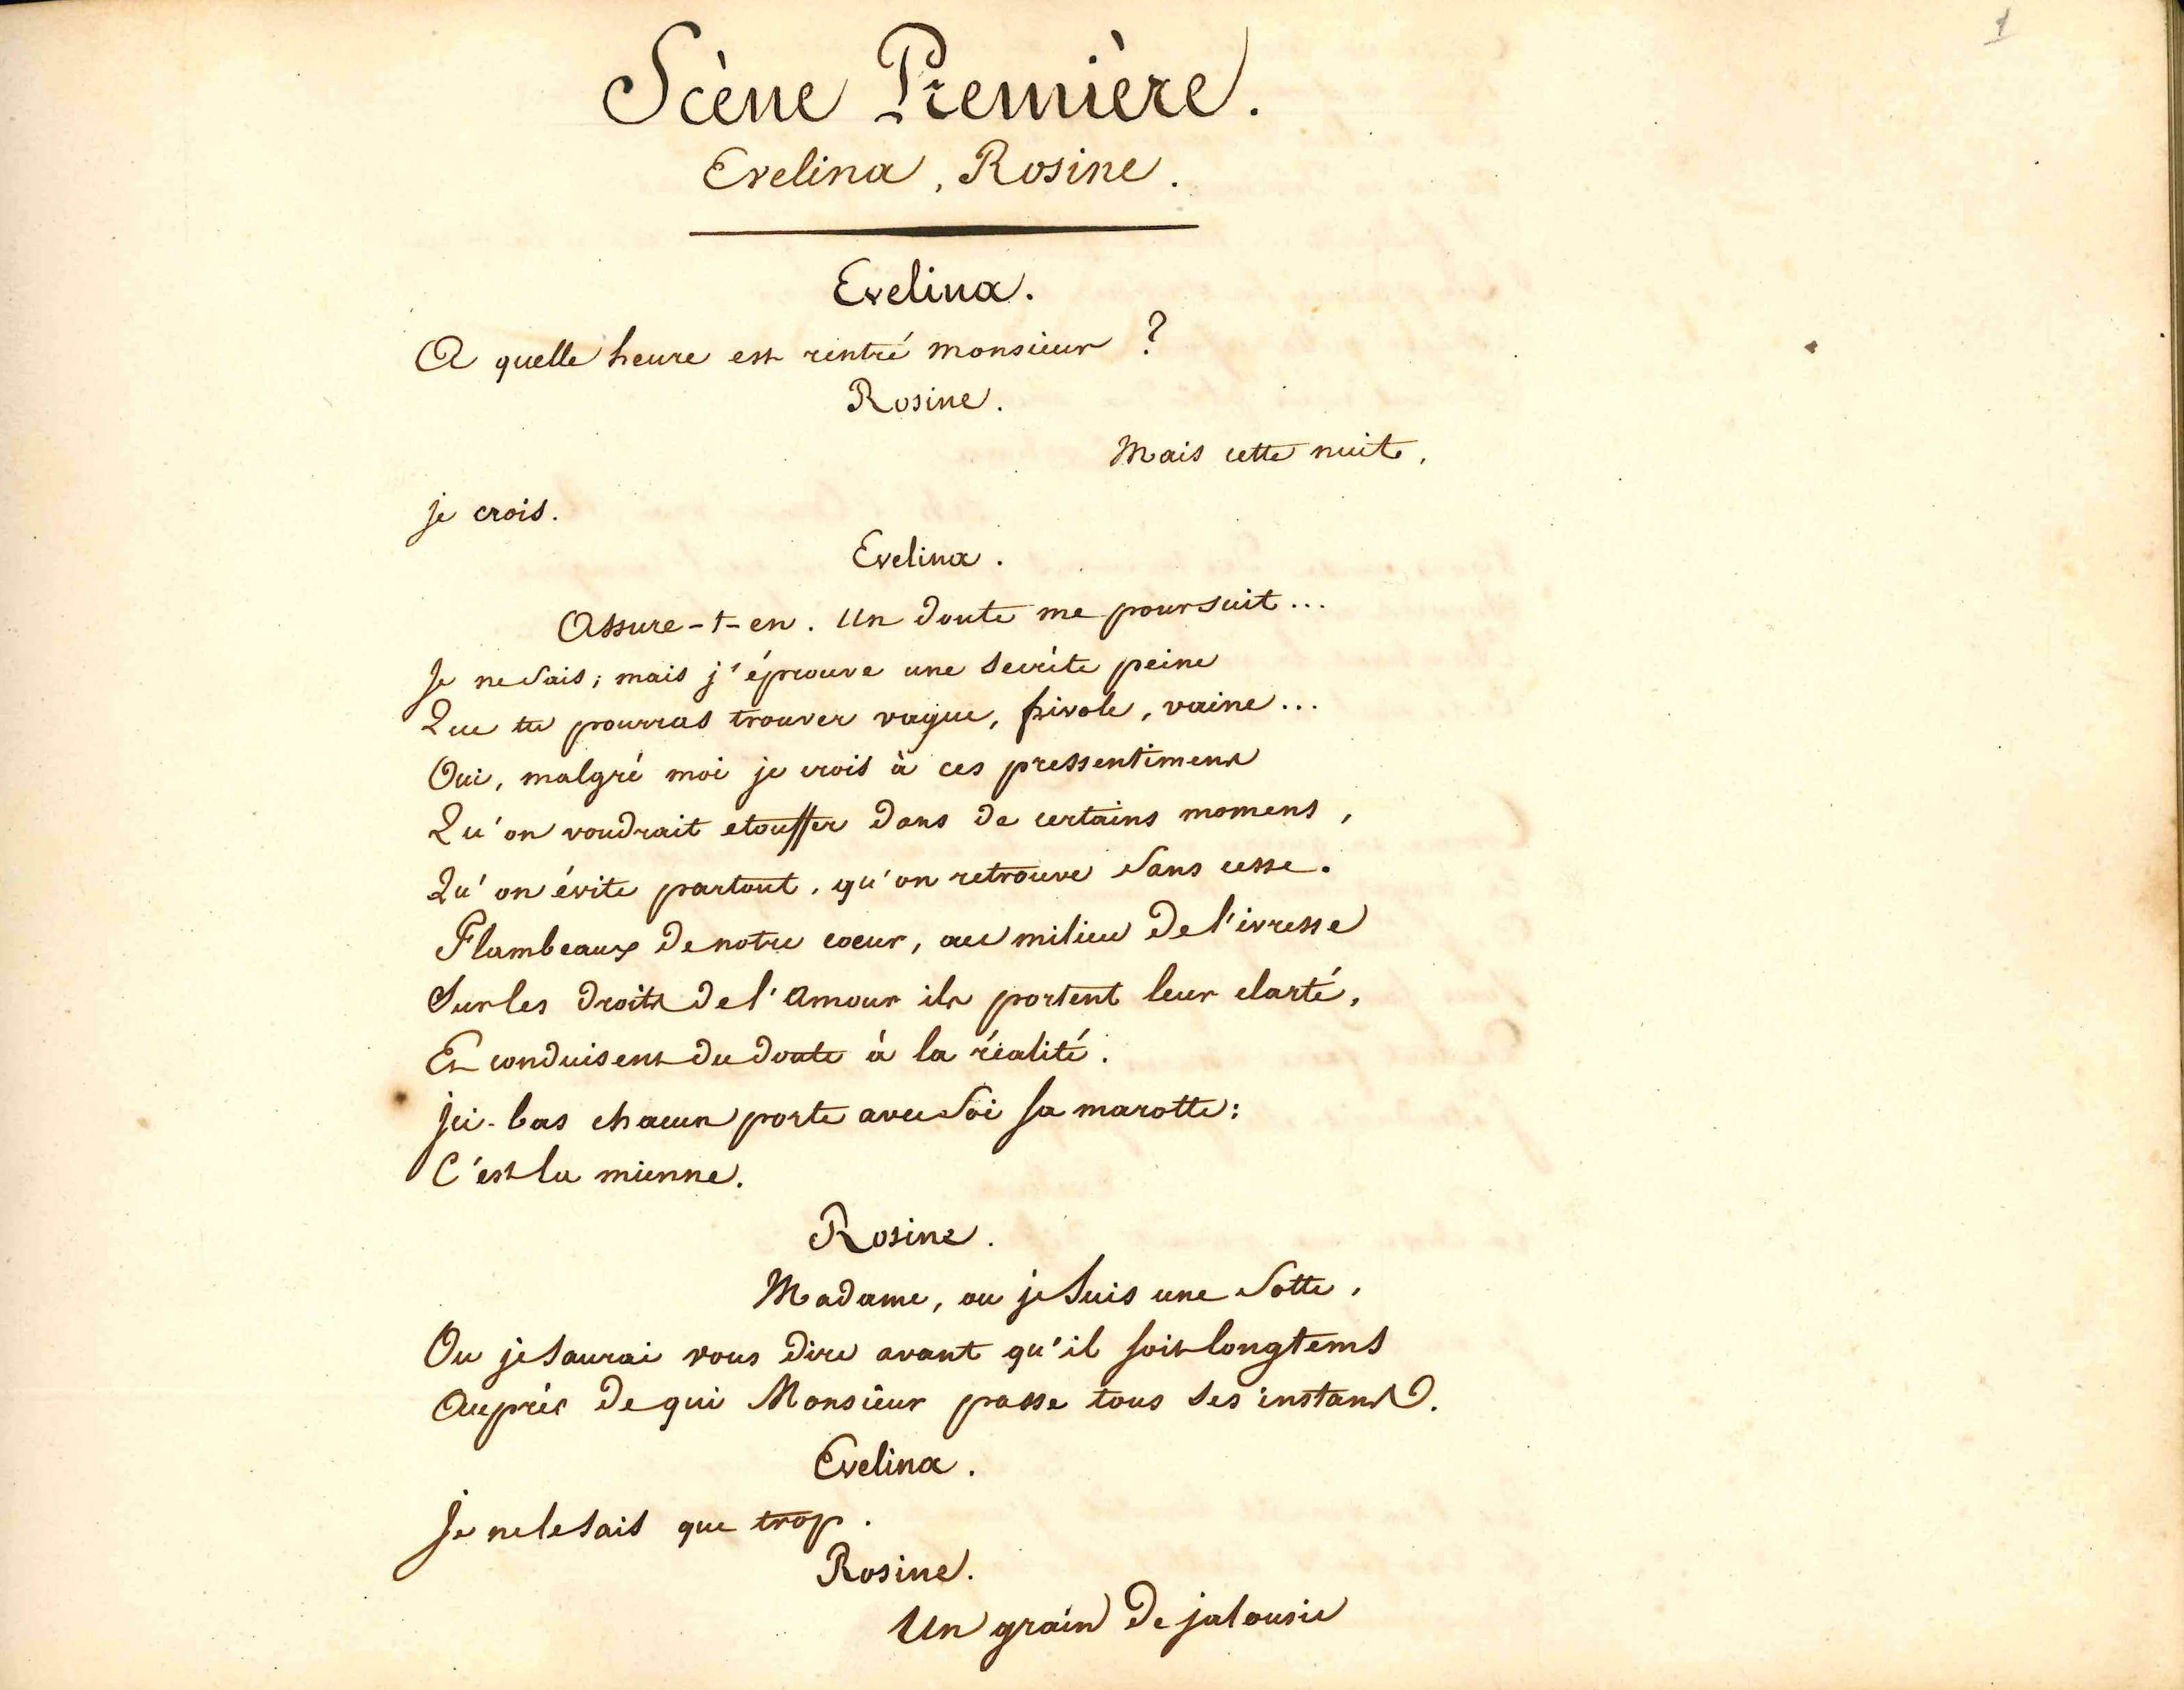 1
Scène Première.
Evelina, Rosine.
Evelina.
A quelle heure est rentré monsieur ?
Rosine.
Mais cette nuit,
je crois.
Evelina.
Assure-t-en. Un doute me poursuit...
Je ne sais; mais j'éprouve une secrète peine
Que tu pourras trouver vague, frivole, vaine...
Oui, malgré moi je crois à ces pressentimens
Qu'on voudrait etouffer dans de certains momens,
Qu'on évite partout, qu'on retrouve sans cesse.
Flambeaux de notre coeur, au milieu de l'ivresse
Sur les droits de l'Amour ils portent leur clarté,
Et conduisent du doute à la réalité.
Ici-bas chacun porte avec soi sa marotte:
C'est la mienne.
Rosine.
Madame, ou je suis une sotte,
Ou je saurai vous dire avant qu'il soit longtems
Auprès de qui Monsieur passe tous ses instans.
Evelina.
Je ne le sais que trop.
Rosine.
Un grain de jalousie